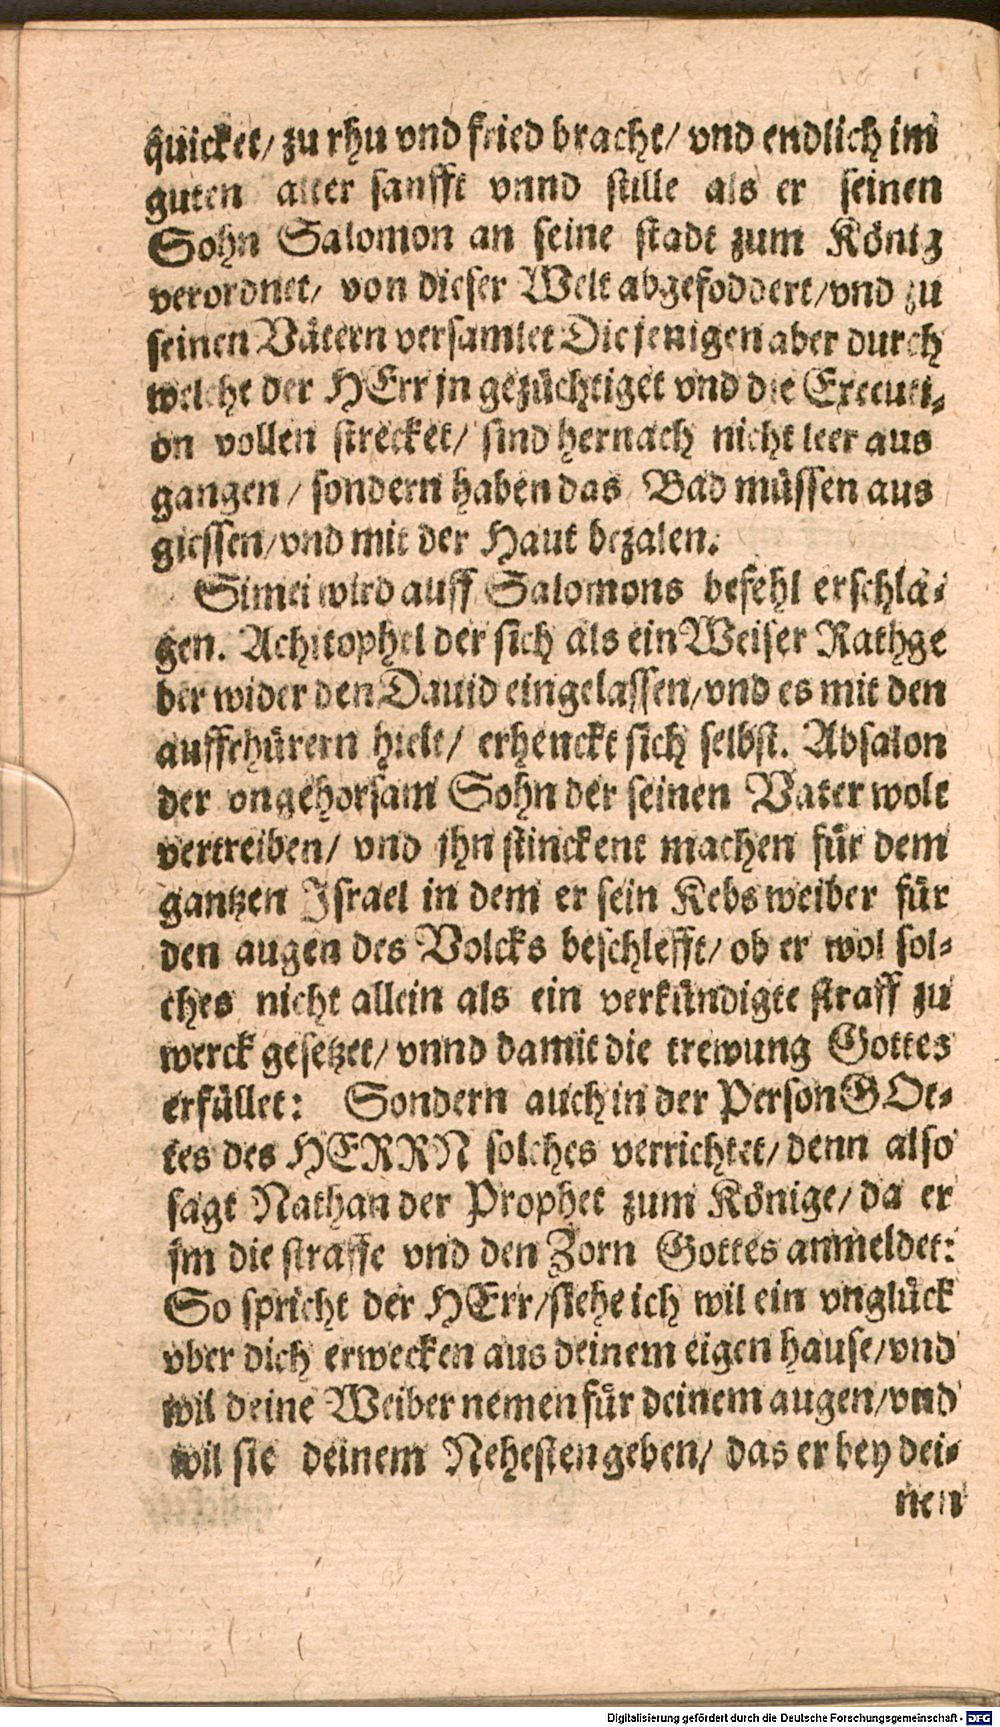 quicket/ zu rhu vnd fried bracht/ vnd endlich im
guten alter sanfft vnnd stille als er seinen
Sohn Salomon an seine stadt zum König
verordnet/ von dieser Welt abgefoddert/vnd zu
seinen Vätern versamlet Diejenigen aber durch
welche der HErr jn gezüchtiget vnd die Executi-
on vollen strecket/ sind hernach nicht leer aus
gangen / sondern haben das Bad müssen aus
giessen/vnd mit der Haut bezalen.
Simei wird auff Salomons befehl erschla-
gen. Achitophel der sich als ein Weiser Rathge
ber wider den Dauid eingelassen/vnd es mit den
auffrhürern hielt/ erhenckt sich selbst. Absalon
der vngehorsam Sohn der seinen Vater wolt
vertreiben/ vnd jhn stinckent machen für dem
gantzen Israel in dem er sein Kebsweiber für
den augen des Volcks beschlefft/ ob er wol sol-
ches nicht allein als ein verkündigte straff zu
werck gesetzet/ vnnd damit die trewung Gottes
erfüllet: Sondern auch in der Person GOt-
tes des HERRN solches verrichtet/ denn also
sagt Nathan der Prophet zum Könige/ da er
jm die straffe vnd den Zorn Gottes anmeldet:
So spricht der HErr/siehe ich wil ein vnglück
vber dich erwecken aus deinem eigen hause/vnd
wil deine Weiber nemen für deinem augen/vnd
wil sie deinem Nehesten geben/ das er bey dei-
nen
Digitalisierung gefördert durch die Deutsche Forschungsgemeinschaft - DFG